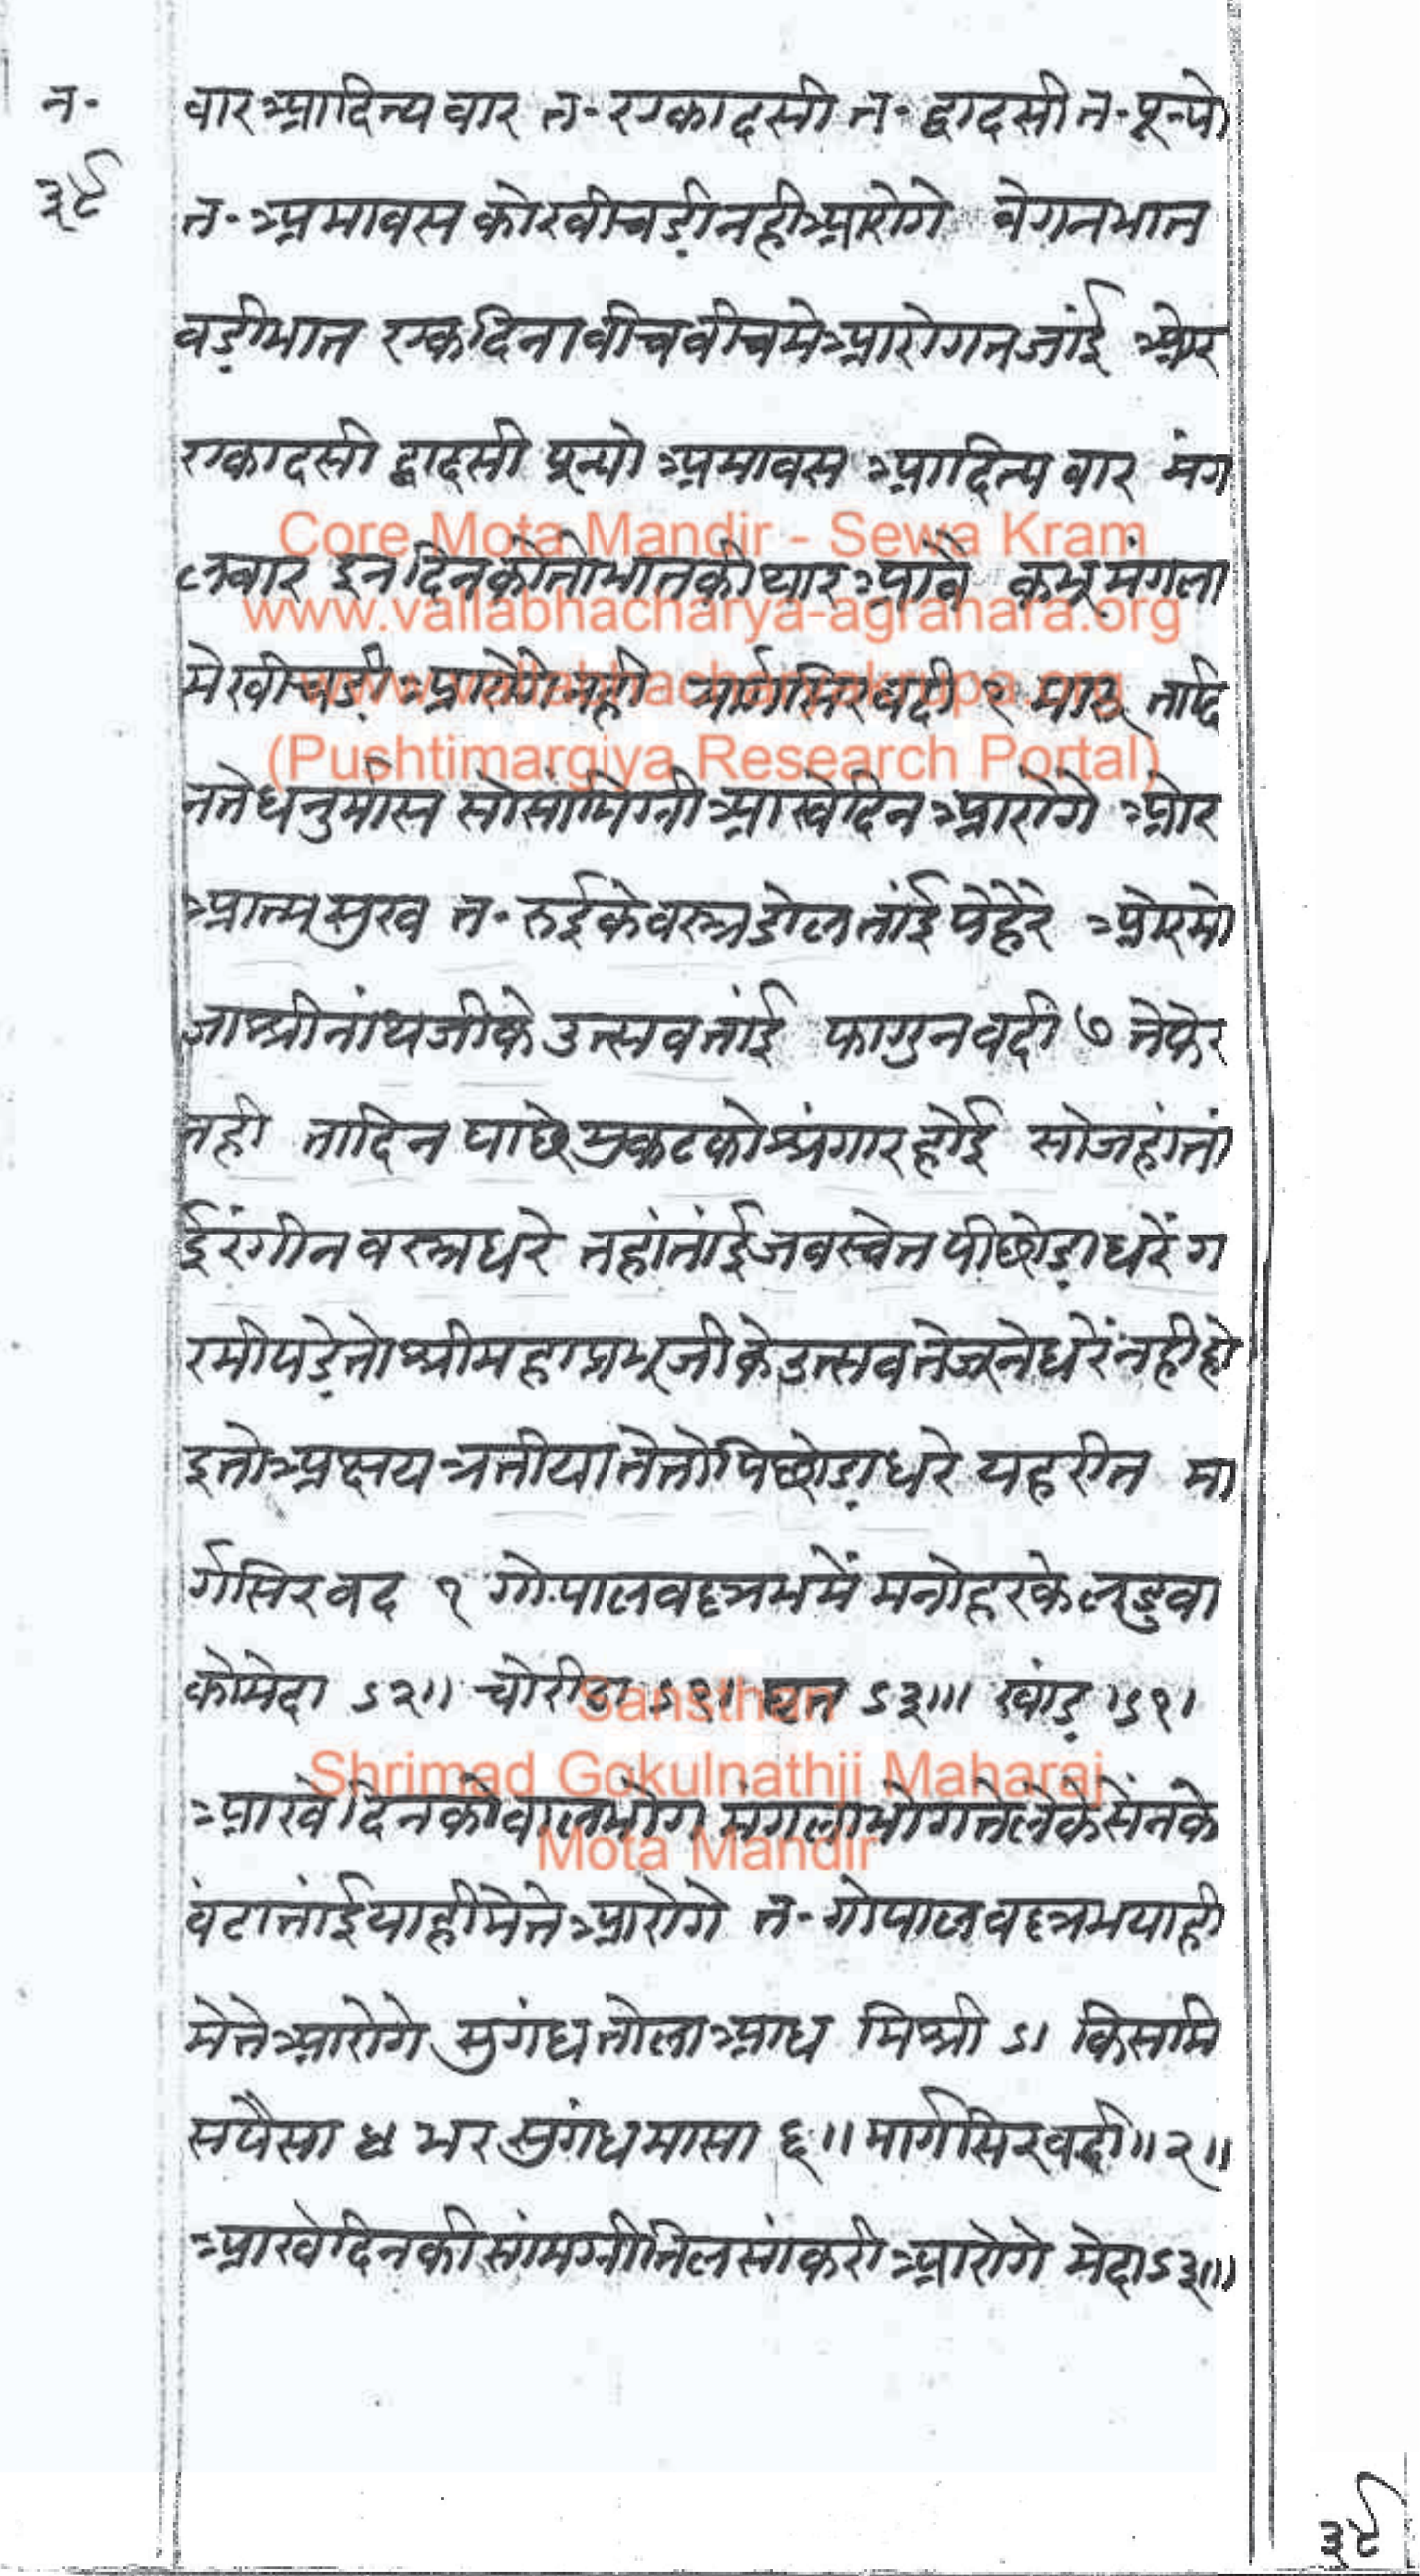 न॰
३९
वार आदित्य वार त॰ एकादसी त॰ द्वादसी त॰ पून्यो
त॰ अमावस को खीचड़ी नही आरोगे वेगन भात
वड़ी भात एक दिना वीच वीच मे आरोगत जांई ओर
एकादसी द्वादसी पून्यो अमावस आदित्य वार मंग
लवार इन दिन को तो भात की थार आवै कभू मंगला
मे खीचड़ी आरोगे नही मार्गसिर वदी १ ता दि
न ते धनुर्मास सो सामिग्री आखे दिन आरोगे ओर
आत्म सुख त॰ रुई के वस्त्र डोल तांई पेहेरे ओर मो
जा श्रीनांथजी के उत्सव तांई फागुन वदी ७ ते फेर
नही ता दिन पाछे मुकट को श्रंगार होई सो जहां तां
ई रंगीन वस्त्र धरे तहां तांई जव स्वेत पीछोड़ा धरें ग
रमी पड़े तो श्री महाप्रभूजी के उत्सव ते उपरने धरें नही हो
इ तो अक्षय त्रतीया ते तो पिछोड़ा धरे यह रीत मा
र्गसिर वद १ गोपालवल्लभ में मनोहर के लडुवा
को मेदा ऽ२॥ चोरीठा घृत ऽ३॥। खांड़ ऽ९।
आखे दिन को वालभोग मंगला भोग ते लेके सेंन के
वंटा तांई याही मे ते आरोगे त॰ गोपालवल्लभ याही
मे ते आरोगे सुगंध तोला आध मिश्री ऽ। किसमि
स पैसा ४ भर सुगंध मासा ६॥ मार्गसिर वदी॥२॥
आखे दिन की सांमग्री तिल सांकरी आरोगे मेदा ऽ३॥।
३९
Core Mota Mandir - Sewa Kram
www.vallabhacharya-agrahara.org
www.vallabhacharyakrupa.org
(Pushtimargiya Research Portal)
Sansthan
Shrimad Gokulnathji Maharaj
Mota Mandir